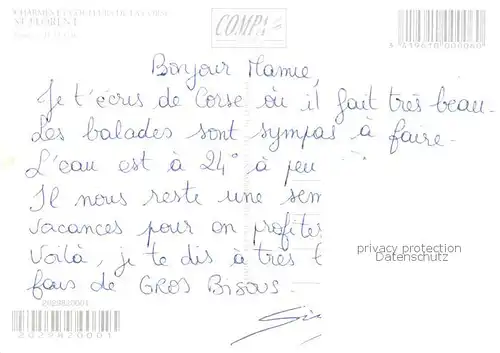 CHARMES ET COULEURS DE LA CORSE
ST FLORENT
COMPA
3419610000060
Bonjour Mamie,
Je t'écris de Corse où il fait très beau.
Les balades sont sympas à faire.
L'eau est à 24° à peu
Il nous reste une sem
vacances pour en profiter
Voilà, je te dis à très b
fais de GROS BISOUS.
privacy protection
Datenschutz
2029820001
2029820001